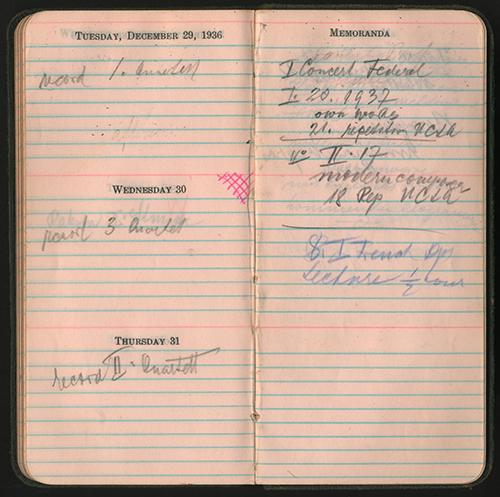 TUESDAY, DECEMBER 29, 1936
record 1. Quartett
WEDNESDAY 30
record 3 Quartet
THURSDAY 31
record II. Quartett
MEMORANDA
I Concert Federal
I. 20. 1937
own works
21. repetition UCLA
II. 17
modern composer
18 Rep UCLA
8. I French
Lecture ½